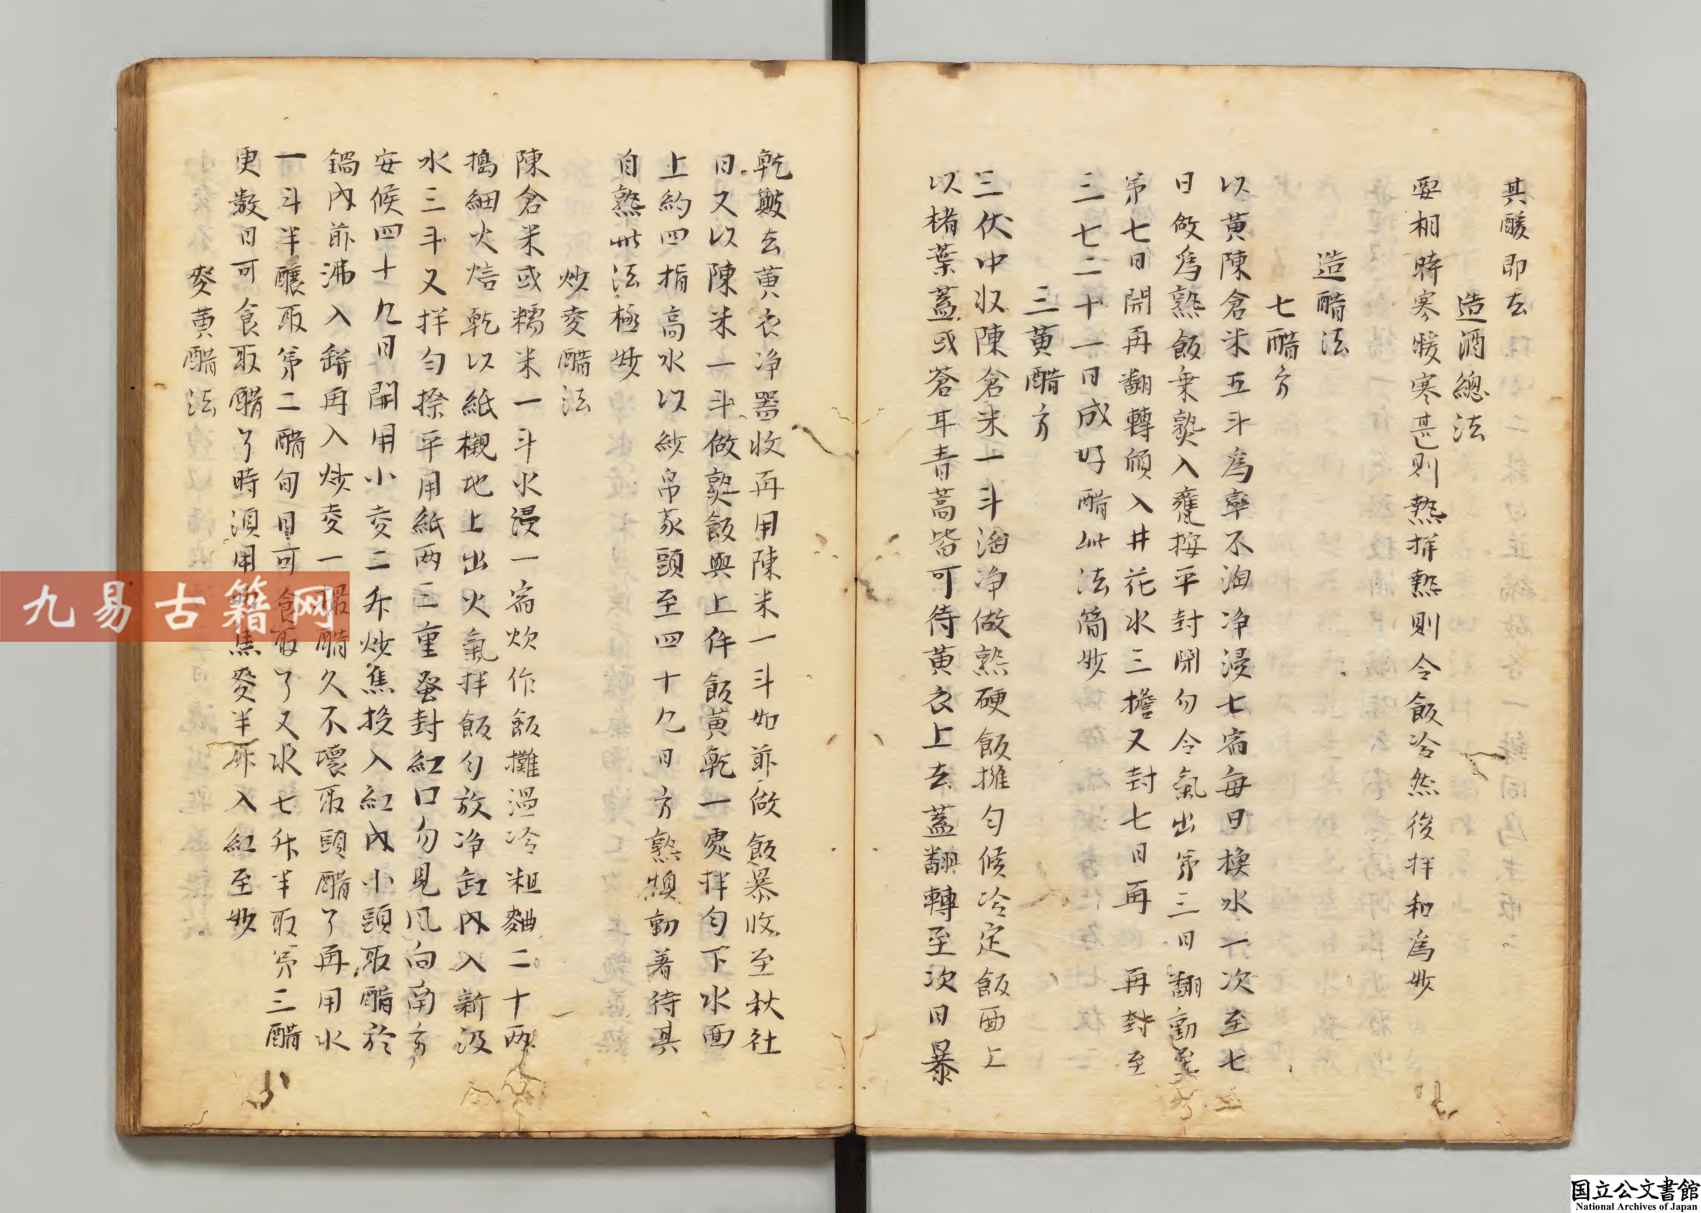 其酸即去
造酒總法
要相時寒暖寒甚則熱拌熱則令飯冷然後拌和為妙
造醋法
七醋方
以黄陳倉米五斗為率不淘净浸七宿每日換水一次至七
日做為熟飯乗熱入甕按平封閉勿令氣出第三日翻動至
第七日開再翻轉傾入井花水三擔又封七日再 再封至
三七二十一日成好醋此法簡妙
三黄醋方
三伏中収陳倉米一斗淘净做熟硬飯攤匀候冷定飯面上
以楮葉蓋或蒼耳青蒿皆可待黄衣上去蓋翻轉至次日暴
乾簸去黄衣净器收再用陳米一斗如前做飯暴收至秋社
日又以陳米一斗做熟飯與上件飯黄乾一處拌匀下水面
上約四指高水以紗帛蒙頭至四十九日方熟頻動著待其
自熟此法極妙
炒麥醋法
陳倉米或糯米一斗水浸一宿炊作飯攤温冷粗麯二十兩
搗細火焙乾以紙襯地上出火氣拌飯匀放净缸內入新汲
水三斗又拌匀捺平用紙两三重蜜封缸口勿見風向南方
安候四十九日開用小麦二升炒焦投入缸內小頭取醋於
鍋內煎沸入缾再入炒麦一醋久不壞取頭醋了再用水
一斗半釀取第二醋旬日可食取了又水七升半取第三醋
更数日可食取醋了時須用焦麥半升入缸至妙
麥黄醋法
九易古籍网
国立公文書館
National Archives of Japan